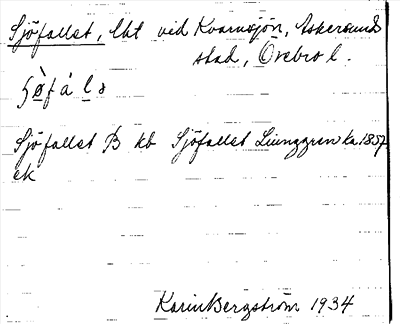 Sjöfallet, lht vid Kvarnsjön, Askersunds
stad, Örebro l.
Sjöfallet B kb Sjöfallet Liunggren ka 1857
ek
Karin Bergström 1934